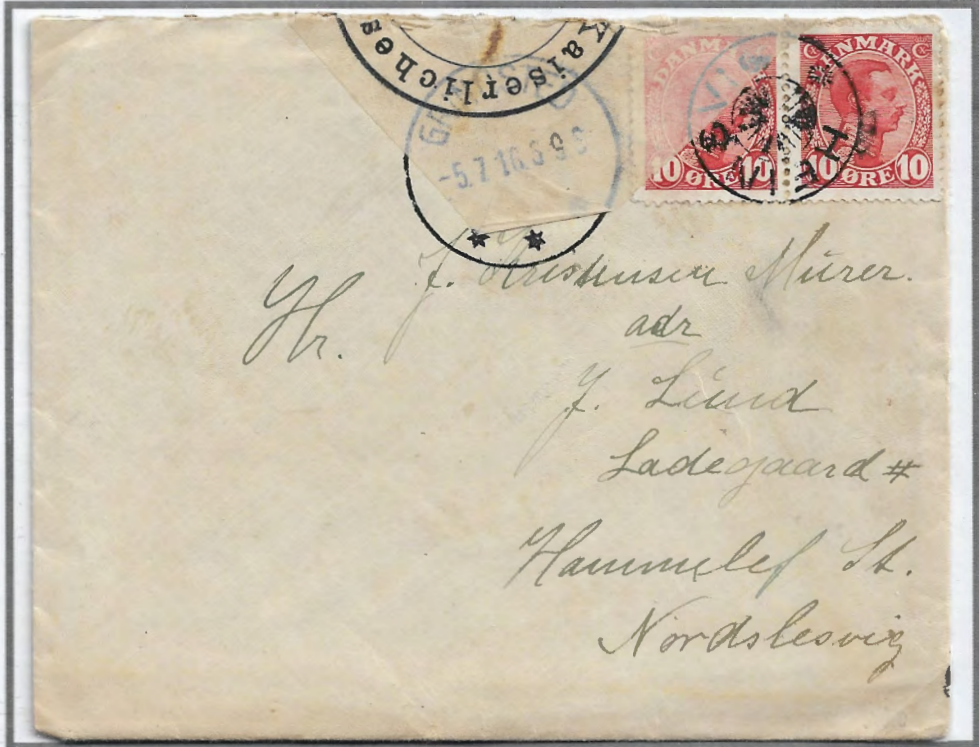 Kaiserliches
DANMARK
10 ØRE 10
DANMARK
10 ØRE 10
-5.7.16.8-9
Hr. J. Kristensen Mürer.
adr
J. Lund
Ladegaard
Hammelef St.
Nordslesvig